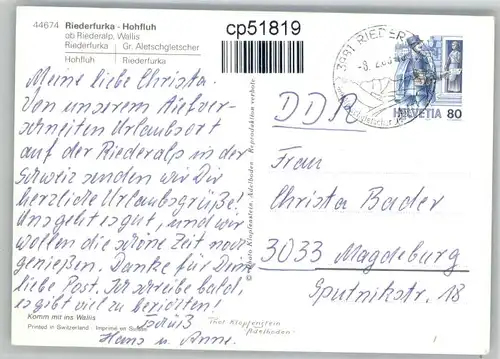 44674 Riederfurka - Hohfluh
ob Riederalp, Wallis
Riederfurka Gr. Aletschgletscher
Hohfluh Riederfurka
cp51819
3981 RIEDER
HELVETIA 80
Meine liebe Christa.
Von unserem tiefver-
schneiten Urlaubsort
auf der Riederalp in der
Schweiz senden wir Dir
herzliche Urlaubsgrüße!
Uns geht es gut, und wir
wollen die schöne Zeit noch
genießen. Danke für Deine
liebe Post. Ich schreibe bald,
es gibt viel zu berichten!
Gruß
Hans u. Anne.
DDR
Frau
Christa Bader
3033 Magdeburg
Sputnikstr. 18
© Photo Klopfenstein, Adelboden. Reproduktion verboten
Komm mit ins Wallis
Printed in Switzerland - Imprimé en Suisse
Thor Klopfenstein
Adelboden